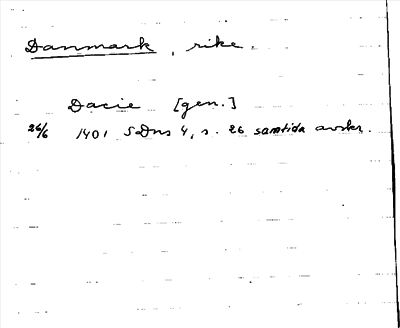 Danmark, rike.
Dacie [gen.]
26/6 1401 SDns 4, s. 26 samtida avskr.